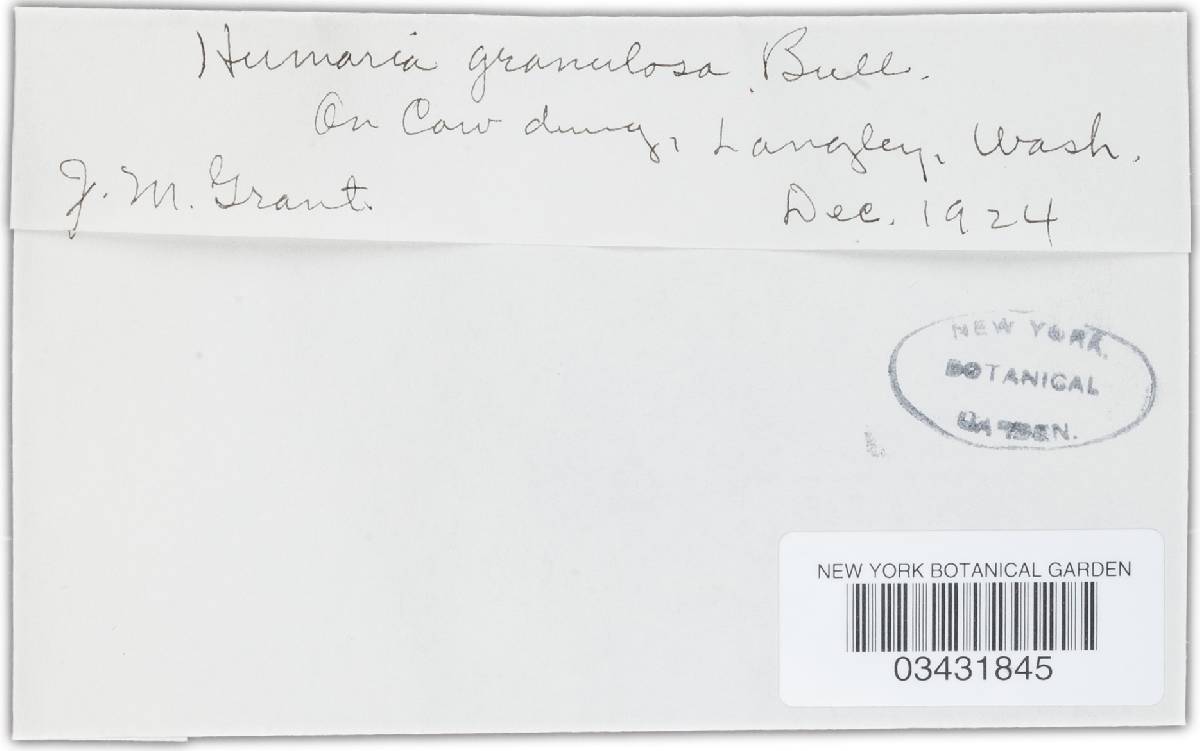 Humaria granulosa, Bull.
On Cow dung, Langley, Wash.
J. M. Grant. Dec. 1924
NEW YORK.
BOTANICAL
GARDEN.
NEW YORK BOTANICAL GARDEN
03431845